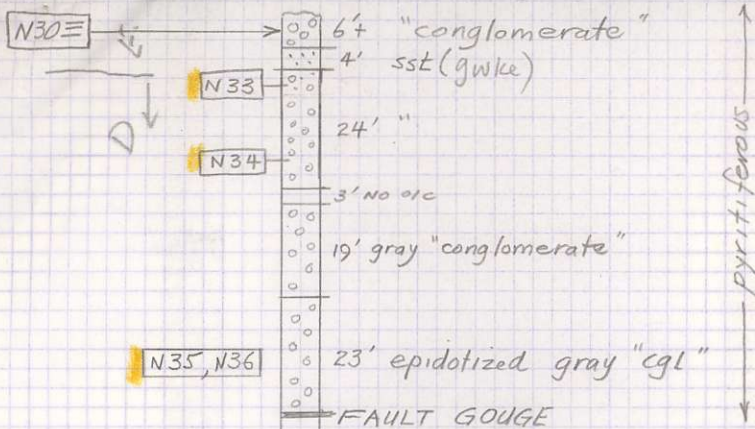 N30≡ 6'+ "conglomerate"
4' sst (gwke)
N33
D
24' "
N34
3' NO o/c
19' gray "conglomerate"
N35, N36 23' epidotized gray "cgl"
FAULT GOUGE
pyritiferous